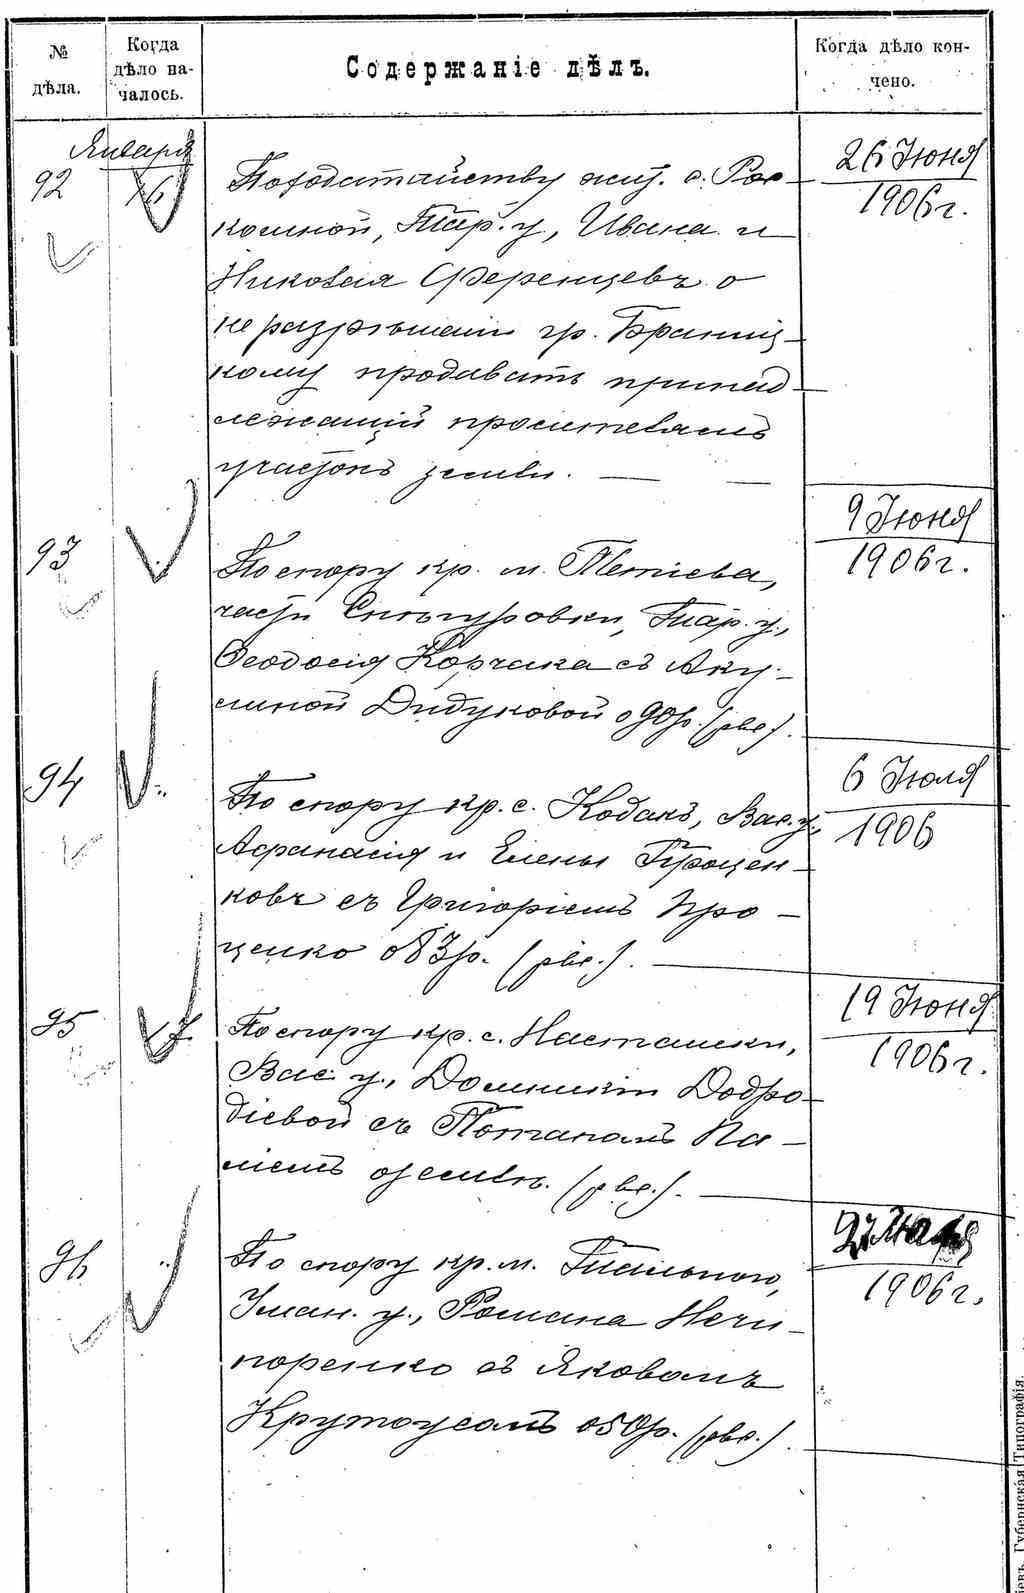 № дѣла.
Когда дѣло началось.
Содержаніе дѣлъ.
Когда дѣло кончено.
Января
92
16
По ходатайству жит. с. Рос-
комной, Тар. у., Ивана и
Николая Ференцевъ о
неразрѣшеніи гр. Браниц-
кому продавать принад-
лежащій просителямъ
участокъ земли.
26 Іюня
1906 г.
93
По спору кр. м. Тетіева,
части Снѣгуровки, Тар. у.,
Ѳеодосія Корчака съ Аку-
линой Дидуковой о 90 р. (рве.).
9 Іюня
1906 г.
94
По спору кр. с. Кодакъ, Вас. у.,
Афанасія и Елены Процен-
ковъ съ Григоріемъ Про-
ценко о 83 р. (рве.).
6 Іюля
1906
95
17
По спору кр. с. Насташки,
Вас. у., Домникіи Додро-
діевой съ Потапомъ Па-
ліемъ о землѣ. (рве.).
19 Іюня
1906 г.
96
По спору кр. м. Тального,
Уман. у., Романа Нечи-
поренко съ Яковомъ
Крутоусомъ о 50 р. (рве.).
1906 г.
Губернская Типографія.